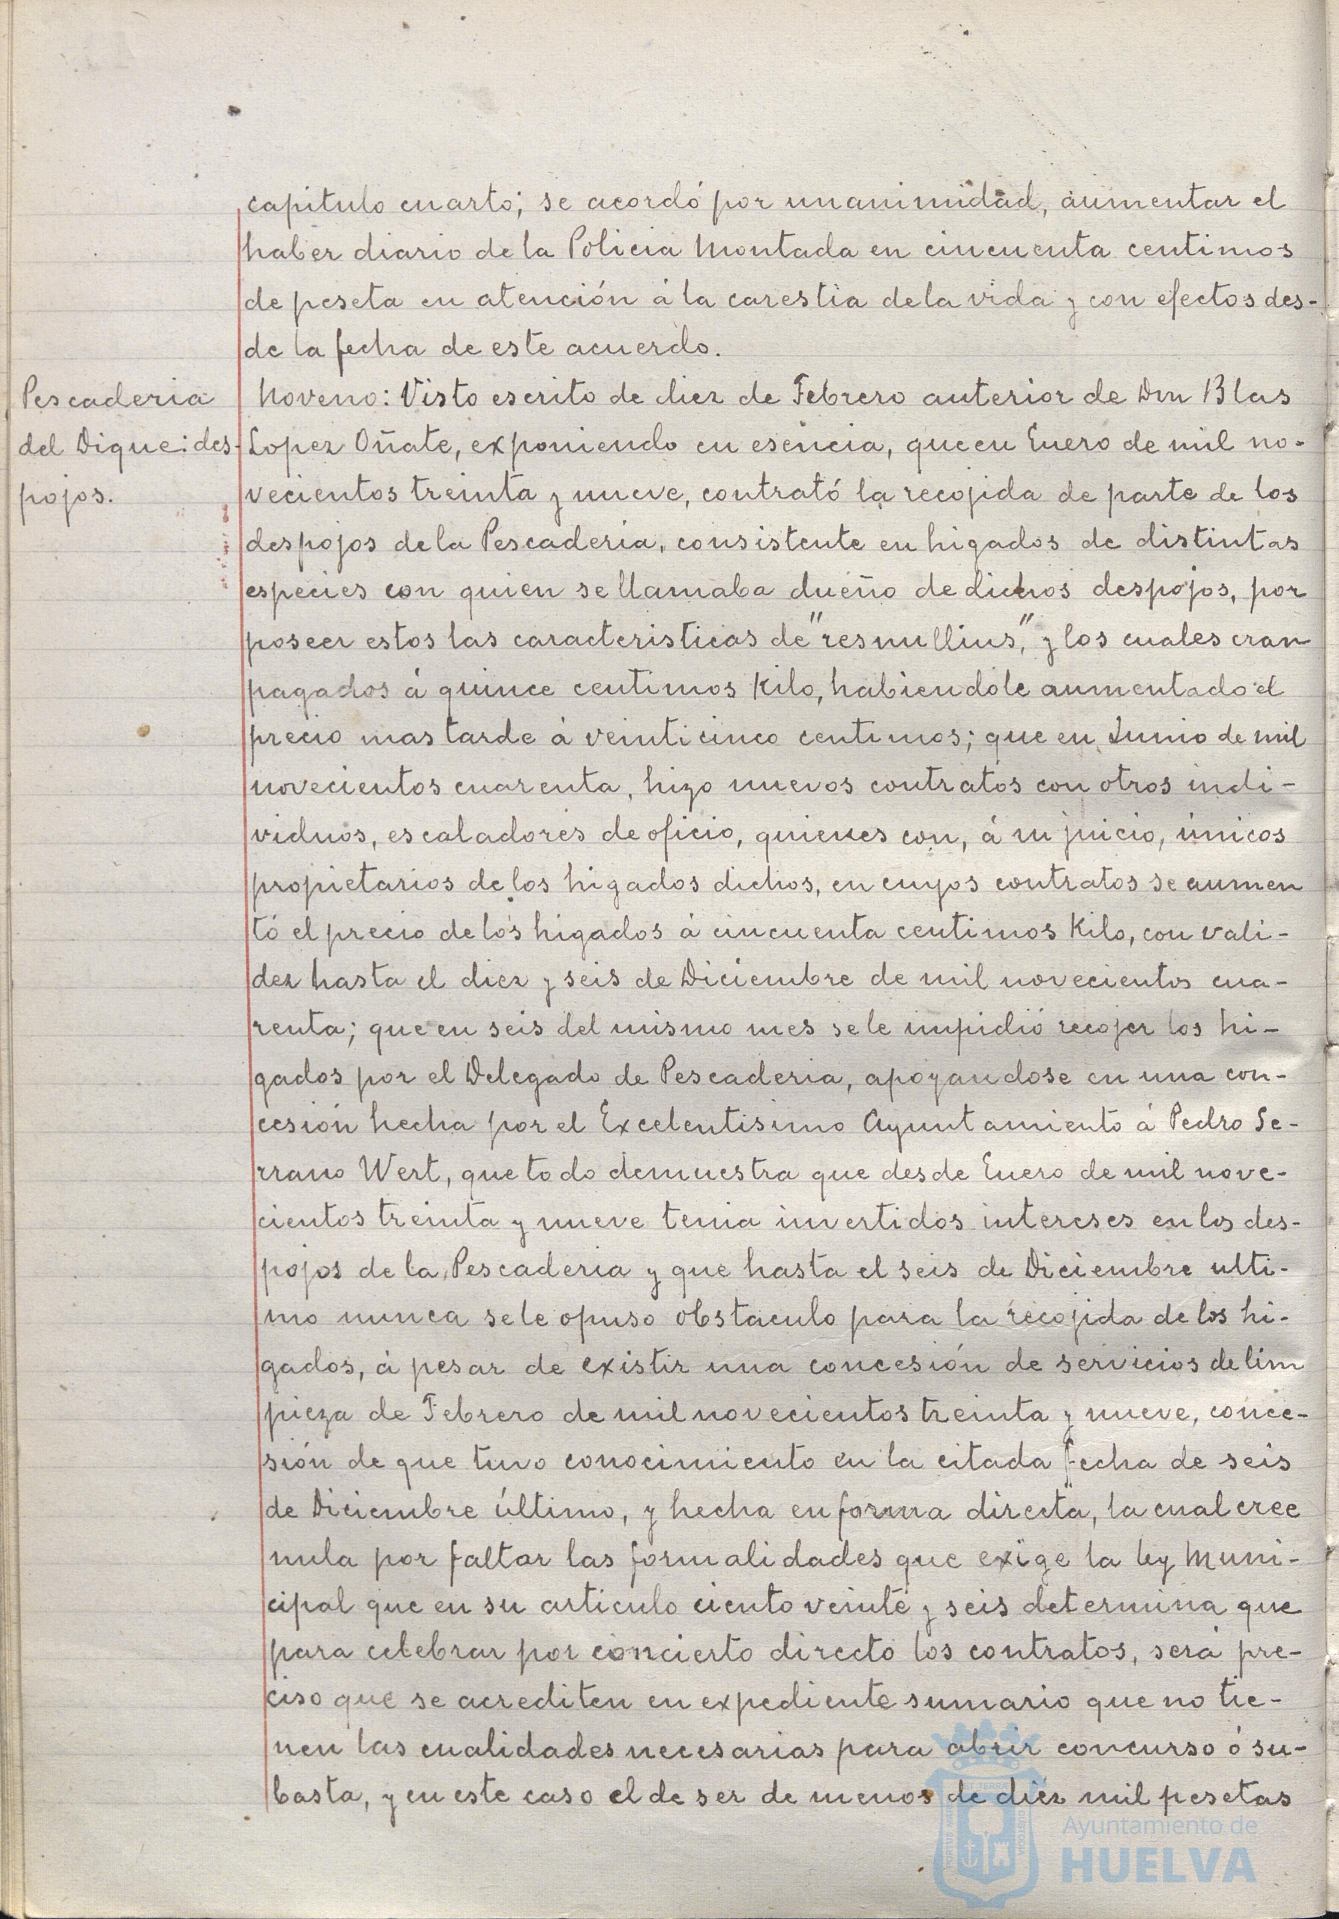 capitulo cuarto; se acordó por unanimidad, aumentar el
haber diario de la Policia Montada en cincuenta centimos
de peseta en atención á la carestia de la vida y con efectos des-
de la fecha de este acuerdo.
Pescaderia
del Dique: des-
pojos.
Noveno: Visto escrito de diez de Febrero anterior de Don Blas
Lopez Oñate, exponiendo en esencia, que en Enero de mil no-
vecientos treinta y nueve, contrató la recojida de parte de los
despojos de la Pescaderia, consistente en higados de distintas
especies con quien se llamaba dueño de dichos despojos, por
poseer estos las caracteristicas de "res nullius", y los cuales eran
pagados á quince centimos Kilo, habiendole aumentado el
precio mas tarde á veinticinco centimos; que en Junio de mil
novecientos cuarenta, hizo nuevos contratos con otros indi-
viduos, escaladores de oficio, quienes con, á su juicio, únicos
propietarios de los higados dichos, en cuyos contratos se aumen
tó el precio de los higados á cincuenta centimos Kilo, con vali-
dez hasta el diez y seis de Diciembre de mil novecientos cua-
renta; que en seis del mismo mes se le impidió recojer los hi-
gados por el Delegado de Pescaderia, apoyandose en una con-
cesión hecha por el Excelentisimo Ayuntamiento á Pedro Se-
rrano Wert, que todo demuestra que desde Enero de mil nove-
cientos treinta y nueve tenia invertidos intereses en los des-
pojos de la Pescaderia y que hasta el seis de Diciembre ulti-
mo nunca se le opuso obstaculo para la recojida de los hi-
gados, á pesar de existir una concesión de servicios de lim
pieza de Febrero de mil novecientos treinta y nueve, conce-
sión de que tuvo conocimiento en la citada fecha de seis
de Diciembre último, y hecha en forma directa, la cual cree
nula por faltar las formalidades que exige la ley Muni-
cipal que en su articulo ciento veinte y seis determina que
para celebrar por concierto directo los contratos, será pre-
ciso que se acrediten en expediente sumario que no tie-
nen las cualidades necesarias para abrir concurso ó su-
basta, y en este caso el de ser de menos de diez mil pesetas
Ayuntamiento de
HUELVA